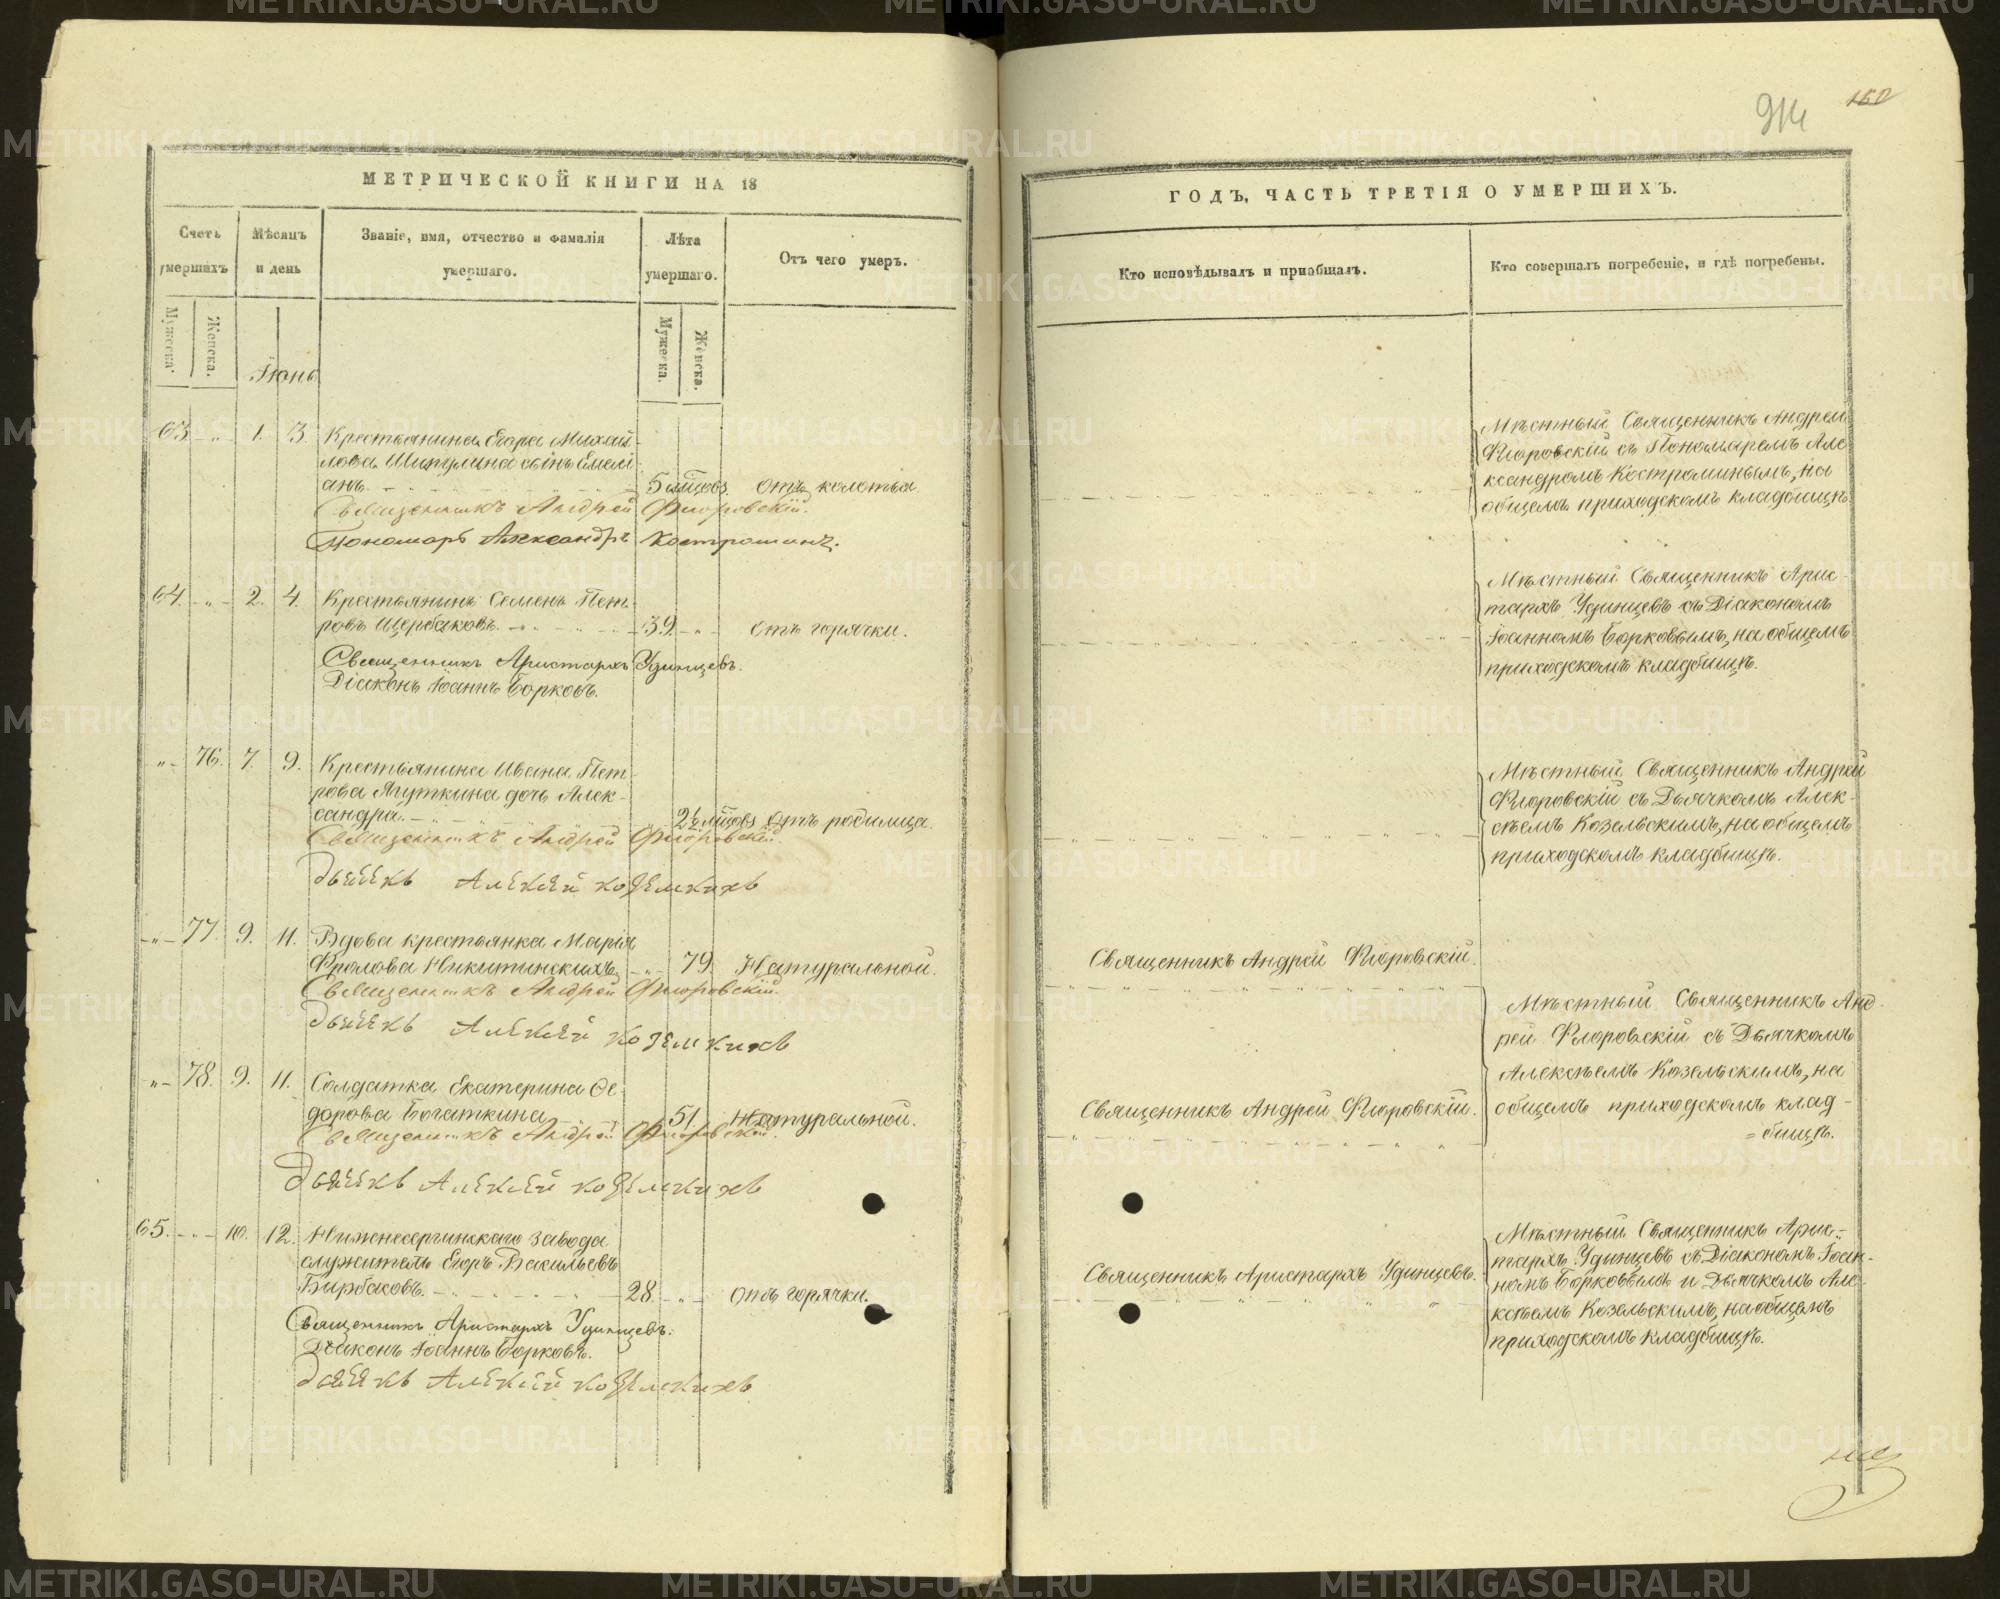 914
150
МЕТРИЧЕСКОЙ КНИГИ НА 18
Счетъ умершихъ
Мѣсяцъ и день
Званіе, имя, отчество и фамилія умершаго.
Лѣта умершаго.
Отъ чего умеръ.
Мужеска.
Женска.
Мужеска.
Женска.
Іюнь
63 - „ - 1. 3. Крестьянина Егора Михай-
лова Шипулина сынъ Емелі-
анъ. 5 мѣсцовъ. отъ колотья.
Священникъ Андрей Флоровскій.
Пономарь Александръ Костроминъ.
64. - „ - 2. 4. Крестьянинъ Семенъ Пет-
ровъ Щербаковъ. 39. - „ - отъ горячки.
Священникъ Аристархъ Удинцевъ.
Діаконъ Іоаннъ Борковъ.
„ - 76. 7. 9. Крестьянина Ивана Пет-
рова Ягуткина дочь Алек-
сандра. 2½ мѣсцовъ отъ родимца.
Священникъ Андрей Флоровскій.
Дьячекъ Алексей Козелскихъ
- „ - 77. 9. 11. Вдова крестьянка Марія
Фролова Никитинскихъ - „ - 79. Натуральной.
Священникъ Андрей Флоровскій.
Дьячекъ Алексей Козелскихъ
„ - 78. 9. 11. Солдатка Екатерина Ѳе-
дорова Богаткина 51. Натуральной.
Священникъ Андрей Флоровскій.
Дьячекъ Алексей Козелскихъ
65. - „ - 10. 12. Нижнесергинскаго завода
служитель Егоръ Васильевъ
Бирбаковъ. 28. - „ - отъ горячки.
Священникъ Аристархъ Удинцевъ.
Діаконъ Іоаннъ Борковъ.
Дьячекъ Алексей Козелскихъ
ГОДЪ, ЧАСТЬ ТРЕТІЯ О УМЕРШИХЪ.
Кто исповѣдывалъ и пріобщалъ.
Кто совершалъ погребеніе, и гдѣ погребены.
Мѣстный Священникъ Андрей
Флоровскій съ Пономаремъ Але
ксандромъ Костроминымъ, на
общемъ приходскомъ кладбищѣ.
Мѣстный Священникъ Арис-
тархъ Удинцевъ съ Діакономъ
Іоанномъ Борковымъ, на общемъ
приходскомъ кладбищѣ.
Мѣстный Священникъ Андрей
Флоровскій съ Дьячкомъ Алек-
сѣемъ Козельскимъ, на общемъ
приходскомъ кладбищѣ.
Священникъ Андрей Флоровскій.
Мѣстный Священникъ Анд-
рей Флоровскій съ Дьячкомъ
Алексѣемъ Козельскимъ, на
общемъ приходскомъ клад-
=бищѣ.
Священникъ Андрей Флоровскій.
Священникъ Аристархъ Удинцевъ.
Мѣстный Священникъ Арис-
тархъ Удинцевъ съ Діакономъ Іоан-
номъ Борковымъ и Дьячкомъ Але-
ксѣемъ Козельскимъ, на общемъ
приходскомъ кладбищѣ.
METRIKI.GASO-URAL.RU